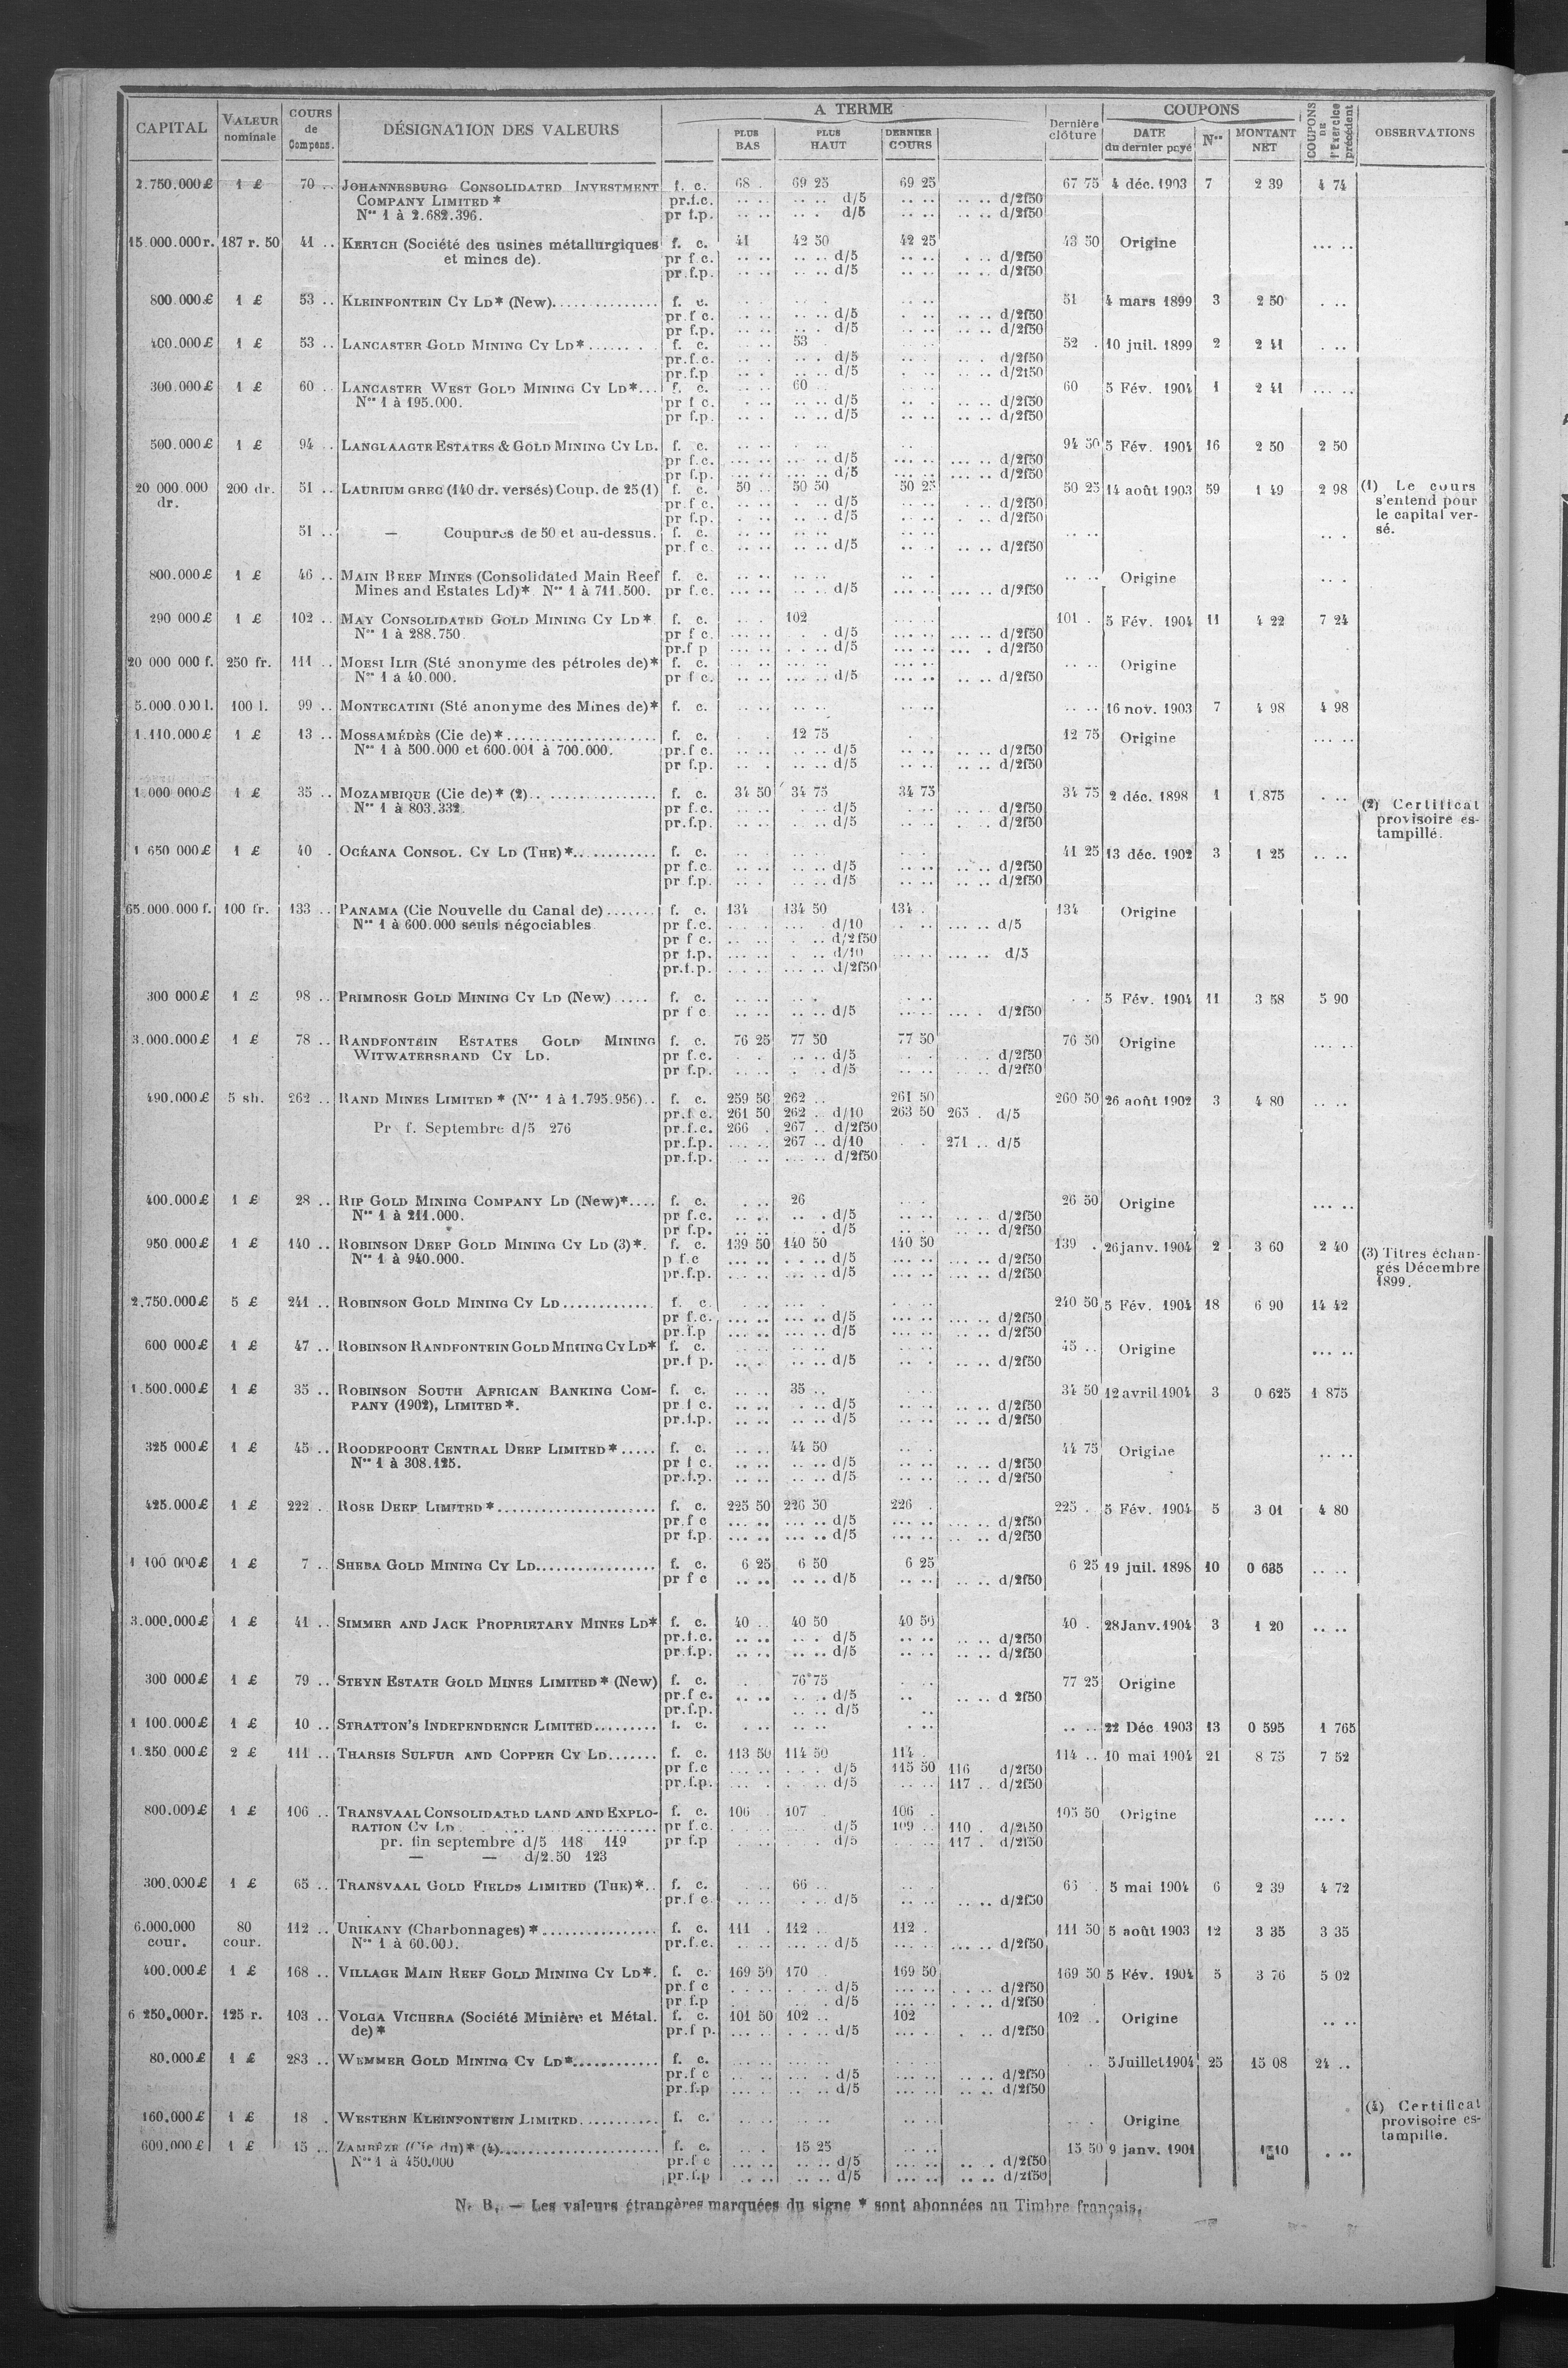 CAPITAL VALEUR nominale COURS de Compens. DÉSIGNATION DES VALEURS A TERME PLUS BAS PLUS HAUT DERNIER COURS Dernière clôture COUPONS DATE du dernier payé Nos MONTANT NET COUPONS DE l'Exercice précédent OBSERVATIONS
2.750.000£ 1 £ 70 .. JOHANNESBURG CONSOLIDATED INVESTMENT f. c. 68 . 69 25 69 25 67 75 4 déc. 1903 7 2 39 4 74
COMPANY LIMITED * pr.f.c. .. .. .. .. d/5 .. .. .. .. d/2f50
Nos 1 à 2.682.396. pr f.p. .. .. .. . d/5 .. .. .. .. d/2f50
15.000.000r. 187 r. 50 41 .. KERTCH (Société des usines métallurgiques f. c. 41 42 50 42 25 43 50 Origine ... ..
et mines de). pr f.c. .. .. .. .. d/5 .. .. . .. d/2f50
pr.f.p. .. .. .. .. d/5 .. .. .. .. d/2f50
800.000£ 1 £ 53 .. KLEINFONTEIN CY LD* (New).............. f. c. 51 4 mars 1899 3 2 50 . ..
pr.f c. .. .. .. .. d/5 . .. .. .. d/2f50
pr f.p. .. .. .. . d/5 .. .. .. .. d/2f50
400.000£ 1 £ 53 .. LANCASTER GOLD MINING CY LD*...... . f. c. 53 52 . 10 juil. 1899 2 2 41 . ..
pr.f.c. .. .. .. . d/5 .. .. .. . d/2f50
pr.f.p .. . .. .. d/5 . .. .. .. d/2f50
300.000£ 1 £ 60 .. LANCASTER WEST GOLD MINING CY LD*... f. c. 60 60 5 Fév. 1904 1 2 41 ... ..
Nos 1 à 195.000. pr f c. . .. .. .. d/5 .. . .. .. d/2f50
pr f.p. .. .. .. .. d/5 .. .. .. .. d/2f50
500.000£ 1 £ 94 .. LANGLAAGTE ESTATES & GOLD MINING CY LD. f. c. 94 50 5 Fév. 1904 16 2 50 2 50
pr f.c. ... .. ... .. d/5 ... .. ... .. d/2f50
pr f.p. ... .. ... .. d/5 ... .. ... .. d/2f50
20 000.000 200 dr. 51 .. LAURIUM GREC (140 dr. versés) Coup. de 25 (1) f. c. 50 .. 50 50 50 25 50 25 14 août 1903 59 1 49 2 98 (1) Le cours
dr. pr f c. . .. .. . d/5 .. .. .. . d/2f50 s'entend pour
pr f.p. . .. .. .. d/5 .. .. . .. d/2f50 le capital ver-
51 .. — Coupures de 50 et au-dessus. f. c. .. .. .. . sé.
pr.f c. .. .. .. .. d/5 .. . .. .. d/2f50
800.000£ 1 £ 46 .. MAIN REEF MINES (Consolidated Main Reef f. c. .. .. Origine .. .
Mines and Estates Ld)* Nos 1 à 711.500. pr f.c. ... .. .. .. d/5 ... .. ... .. d/2f50
290 000£ 1 £ 102 .. MAY CONSOLIDATED GOLD MINING CY LD* f. c. 102 101 . 5 Fév. 1904 11 4 22 7 24
Nos 1 à 288.750. pr f c. ... .. . . d/5 ... .. ... .. d/2f50
pr.f p ... .. .. . d/5 ... .. ... . d/2f50
20 000 000 f. 250 fr. 111 .. MOESI ILIR (Sté anonyme des pétroles de)* f. c. .. .. Origine
Nos 1 à 40.000. pr f c. .. .. ... .. d/5 ... .. .. .. d/2f50
5.000.000 l. 100 l. 99 .. MONTECATINI (Sté anonyme des Mines de)* f. c. .. .. 16 nov. 1903 7 4 98 4 98
1.110.000£ 1 £ 13 .. MOSSAMÉDÈS (Cie de)*.................... f. c. 12 75 12 75 Origine ... ..
Nos 1 à 500.000 et 600.001 à 700.000. pr.f c. .. .. .. .. d/5 .. .. .. .. d/2f50
pr f.p. .. .. .. .. d/5 .. .. .. .. d/2f50
1.000 000£ 1 £ 35 .. MOZAMBIQUE (Cie de)* (2).. ............... f. c. 34 50 34 75 34 75 34 75 2 déc. 1898 1 1.875 . ..
Nos 1 à 803.332. pr f.c. .. .. . .. d/5 . .. .. .. d/2f50 (2) Certificat
pr.f.p. .. .. . .. d/5 .. .. . .. d/2f50 provisoire es-
tampillé.
1 650 000£ 1 £ 40 . OCÉANA CONSOL. CY LD (THE)*............ f. c. 41 25 13 déc. 1902 3 1 25 .. ..
pr f.c. .. .. .. .. d/5 .. .. .. .. d/2f50
pr f.p. .. . .. .. d/5 .. .. .. .. d/2f50
65.000.000 f. 100 fr. 133 .. PANAMA (Cie Nouvelle du Canal de) ....... f. c. 134 134 50 134 . 134 Origine
Nos 1 à 600.000 seuls négociables pr f.c. .. . ... . d/10 . .. ... .. d/5
pr f c. .. .. . .. d/2f50
pr f.p. ... .. .. . d/10 ... .. d/5
pr.f.p. .. .. ... .. d/2f50
300 000£ 1 £ 98 .. PRIMROSE GOLD MINING CY LD (New) ..... f. c. 5 Fév. 1904 11 3 58 5 90
pr f c .. .. ... .. d/5 ... .. ... . d/2f50
3.000.000£ 1 £ 78 .. RANDFONTEIN ESTATES GOLD MINING f. c. 76 25 77 50 77 50 76 50 Origine ... ..
WITWATERSRAND CY LD. pr f.c. . . .. .. d/5 .. .. d/2f50
pr f.p. .. .. . .. d/5 .. .. .. .. d/2f50
490.000£ 5 sh. 262 .. RAND MINES LIMITED * (Nos 1 à 1.795.956).. f. c. 259 50 262 .. 261 50 260 50 26 août 1902 3 4 80 .. ..
pr.f c. 261 50 262 .. d/10 263 50 265 . d/5
Pr f. Septembre d/5 276 pr.f.c. 266 . 267 .. d/2f50
pr.f.p. ... .. 267 .. d/10 271 .. d/5
pr.f.p. .. .. ... .. d/2f50
400.000£ 1 £ 28 .. RIP GOLD MINING COMPANY LD (New)*.... f. c. 26 26 50 Origine ... ..
Nos 1 à 211.000. pr f.c. .. .. .. . d/5 .. .. .. .. d/2f50
pr f.p. .. .. . d/5 .. .. .. .. d/2f50
950.000£ 1 £ 140 .. ROBINSON DEEP GOLD MINING CY LD (3)*. f. c. 139 50 140 50 140 50 139 . 26 janv. 1904 2 3 60 2 40 (3) Titres échan-
Nos 1 à 940.000. p f.c ... .. . .. d/5 ... .. ... .. d/2f50 gés Décembre
pr.f.p. ... .. . .. d/5 ... .. ... .. d/2f50 1899.
2.750.000£ 5 £ 241 .. ROBINSON GOLD MINING CY LD............. f. c. 240 50 5 Fév. 1904 18 6 90 14 42
pr f.c. ... .. ... .. d/5 ... .. ... .. d/2f50
pr.f.p ... .. ... .. d/5 ... .. .. .. d/2f50
600 000£ 1 £ 47 .. ROBINSON RANDFONTEIN GOLD MINING CY LD* f. c. 45 .. Origine ... ..
pr.f p. .. . ... .. d/5 .. . .. .. d/2f50
1.500.000£ 1 £ 35 .. ROBINSON SOUTH AFRICAN BANKING COM- f. c. 35 .. 34 50 12 avril 1904 3 0 625 1 875
PANY (1902), LIMITED *. pr f c. .. .. . .. d/5 .. .. .. .. d/2f50
pr.f.p. .. .. .. .. d/5 .. .. .. .. d/2f50
325 000£ 1 £ 45 .. ROODEPOORT CENTRAL DEEP LIMITED * ..... f. c. 44 50 44 75 Origine .. ..
Nos 1 à 308.125. pr f c. .. .. .. .. d/5 .. .. .. .. d/2f50
pr.f.p. .. .. .. .. d/5 .. .. .. .. d/2f50
425.000£ 1 £ 222 . ROSE DEEP LIMITED *...................... f. c. 225 50 226 50 226 . 225 . 5 Fév. 1904 5 3 01 4 80
pr.f c ... .. ... .. d/5 ... .. ... .. d/2f50
pr f.p. ... .. ... .. d/5 ... .. .. .. d/2f50
1 100 000£ 1 £ 7 .. SHEBA GOLD MINING CY LD................. f. c. 6 25 6 50 6 25 6 25 19 juil. 1898 10 0 635 .. ..
pr f c .. .. .. .. d/5 .. .. .. .. d/2f50
3.000.000£ 1 £ 41 .. SIMMER AND JACK PROPRIETARY MINES LD* f. c. 40 .. 40 50 40 50 40 . 28 Janv. 1904 3 1 20 .. ..
pr.f.c. .. .. .. . d/5 .. .. .. .. d/2f50
pr.f.p. .. .. .. .. d/5 .. .. .. .. d/2f50
300 000£ 1 £ 79 .. STEYN ESTATE GOLD MINES LIMITED * (New) f. c. 76 75 77 25 Origine
pr.f c. .. .. .. . d/5 .. .. .. d 2f50
pr.f.p. .. .. d/5
1 100.000£ 1 £ 10 .. STRATTON'S INDEPENDENCE LIMITED......... f. c. .. .. 22 Déc 1903 13 0 595 1 765
1.250 000£ 2 £ 111 .. THARSIS SULFUR AND COPPER CY LD....... f. c. 113 50 114 50 114 . 114 .. 10 mai 1904 21 8 75 7 52
pr f.c ... .. . . . d/5 115 50 116 d/2f50
pr.f.p. ... . .. . d/5 .. .. 117 .. d/2f50
800.000£ 1 £ 106 .. TRANSVAAL CONSOLIDATED LAND AND EXPLO- f. c. 106 . 107 . 106 . 105 50 Origine ... .
RATION CY LD pr f.c. d/5 109 .. 110 . d/2f50
pr. fin septembre d/5 118 119 pr f.p d/5 117 . d/2f50
— — d/2.50 123
300.000£ 1 £ 65 .. TRANSVAAL GOLD FIELDS LIMITED (THE)*.. f. c. 66 .. 5 mai 1904 6 2 39 4 72
pr.f c. . .. d/5 .. .. .. .. d/2f50
6.000.000 80 112 .. URIKANY (Charbonnages) *................ f. c. 111 . 112 .. 112 . 111 50 5 août 1903 12 3 35 3 35
cour. cour. Nos 1 à 60.000. pr.f.c. .. .. ... .. d/5 ... .. ... .. d/2f50
400.000£ 1 £ 168 .. VILLAGE MAIN REEF GOLD MINING CY LD*. f. c. 169 50 170 169 50 169 50 5 Fév. 1904 5 3 76 5 02
pr.f c .. .. . .. d/5 ... .. . .. d/2f50
pr f.p . .. d/5 ... .. . .. d/2f50
6 250.000r. 125 r. 103 .. VOLGA VICHERA (Société Minière et Métal. f. c. 101 50 102 .. 102 102 . Origine .. ..
de)* pr.f p. ... .. . .. d/5 ... . . .. d/2f50
80.000£ 1 £ 283 .. WEMMER GOLD MINING CY LD*............ f. c. 5 Juillet 1904 25 15 08 24 ..
pr.f c .. .. d/5 ... .. .. .. d/2f50
pr.f.p ... .. .. .. d/5 ... .. .. .. d/2f50
160.000£ 1 £ 18 . WESTERN KLEINFONTEIN LIMITED........... f. c. Origine (4) Certificat
provisoire es-
tampille.
600.000£ 1 £ 15 .. ZAMBÈZE (Cie du)* (4)...................... f. c. 15 25 15 50 9 janv. 1901 . ..
Nos 1 à 450.000 pr.f c ... .. .. .. d/5 ... .. .. . d/2f50
pr.f.p .. .. .. .. d/5 ... .. .. .. d/2f50
N. B. — Les valeurs étrangères marquées du signe * sont abonnées au Timbre français.